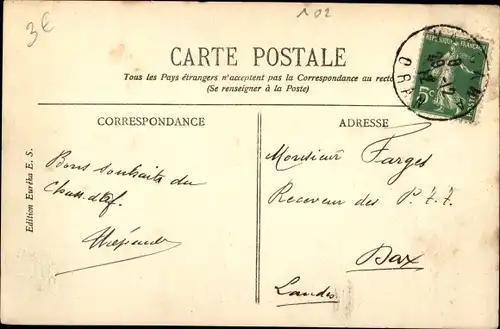 3€
102
CARTE POSTALE
Tous les Pays étrangers n'acceptent pas la Correspondance au recto
(Se renseigner à la Poste)
RÉPUBLIQUE FRANÇAISE
5c
CORRESPONDANCE
ADRESSE
Edition Eurêka E. S.
Bons souhaits du
Monsieur Farges
Receveur des P. T. T.
Dax
Landes